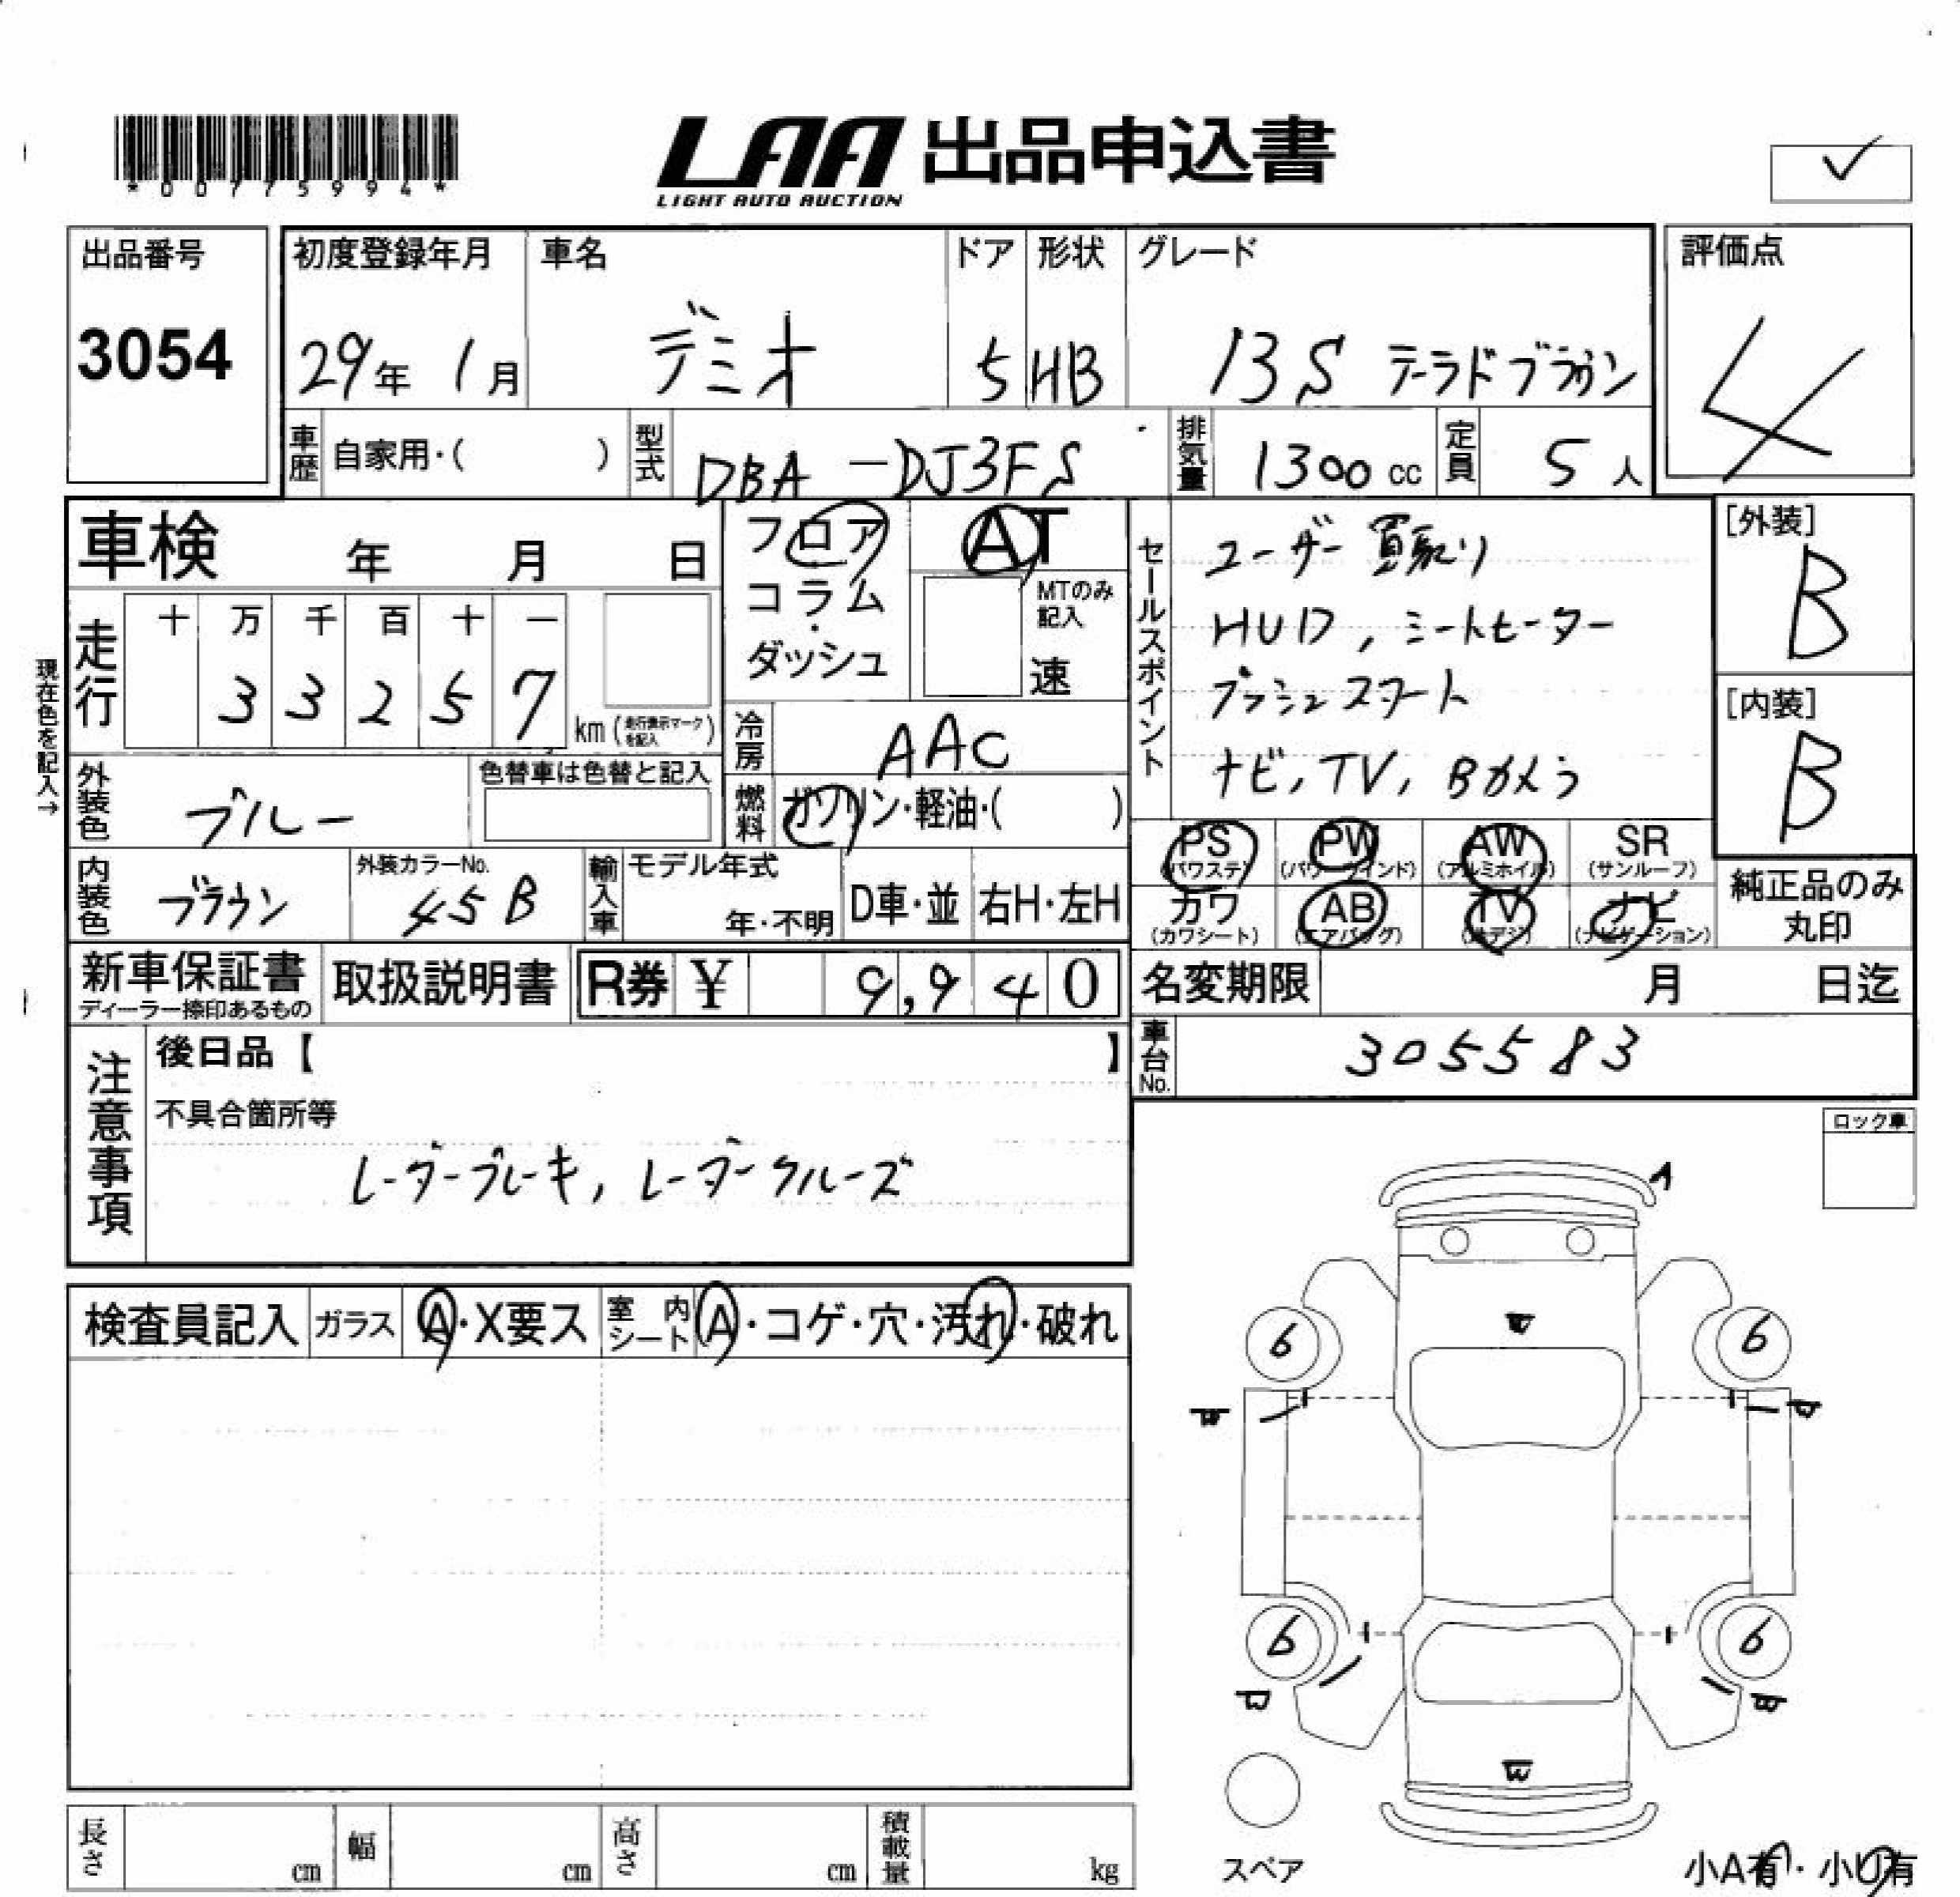 *00775994*
LAA 出品申込書
LIGHT AUTO AUCTION
出品番号
3054
初度登録年月
29年 1月
車名
デミオ
ドア
5
形状
HB
グレード
13S テーラドブラウン
評価点
4
車歴 自家用・( )
型式 DBA-DJ3FS
排気量 1300 cc
定員 5 人
車検 年 月 日
フロア
コラム・
ダッシュ
AT
MTのみ
記入
速
走行
十 万 千 百 十 一
3 3 2 5 7
km (走行表示マークを記入)
現在色を記入→
冷房 AAC
外装色 ブルー
色替車は色替と記入
燃料 ガソリン・軽油・( )
内装色 ブラウン
外装カラーNo.
45B
輸入車 モデル年式
年・不明
D車・並
右H・左H
セールスポイント
ユーザー買取り
HUD, シートヒーター
プッシュスタート
ナビ, TV, Bカメラ
[外装]
B
[内装]
B
PS
(パワステ)
PW
(パワーウインド)
AW
(アルミホイル)
SR
(サンルーフ)
カワ
(カワシート)
AB
(エアバッグ)
TV
(地デジ)
ナビ
(ナビゲーション)
純正品のみ
丸印
新車保証書
ディーラー捺印あるもの
取扱説明書
R券 ¥ 9,940
名変期限 月 日迄
車台No. 305583
注意事項
後日品【 】
不具合箇所等
レーダーブレーキ, レーダークルーズ
ロック車
検査員記入
ガラス A・X要ス
室内シート A・コゲ・穴・汚れ・破れ
A
A
6 6
6 6
B
B
B
スペア
小A有・小U有
長さ cm
幅 cm
高さ cm
積載量 kg